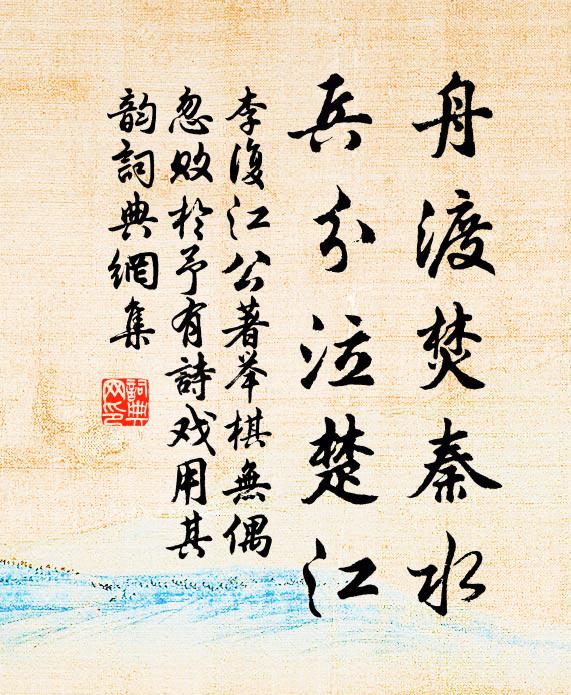 舟渡焚秦水
兵分泣楚江
李復江公著举棋無偶
忽败於予有詩戏用其
韵詞典網集
詞典
网印